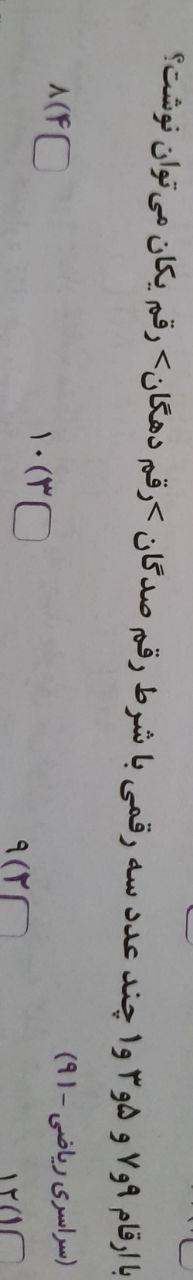 با ارقام ۹ و ۷ و ۵ و ۳ و ۱ چند عدد سه رقمی با شرط رقم صدگان > رقم دهگان > رقم یکان می توان نوشت؟
(سراسری ریاضی - ۹۱)
۱) ۱۲ ۲) ۹ ۳) ۱۰ ۴) ۸